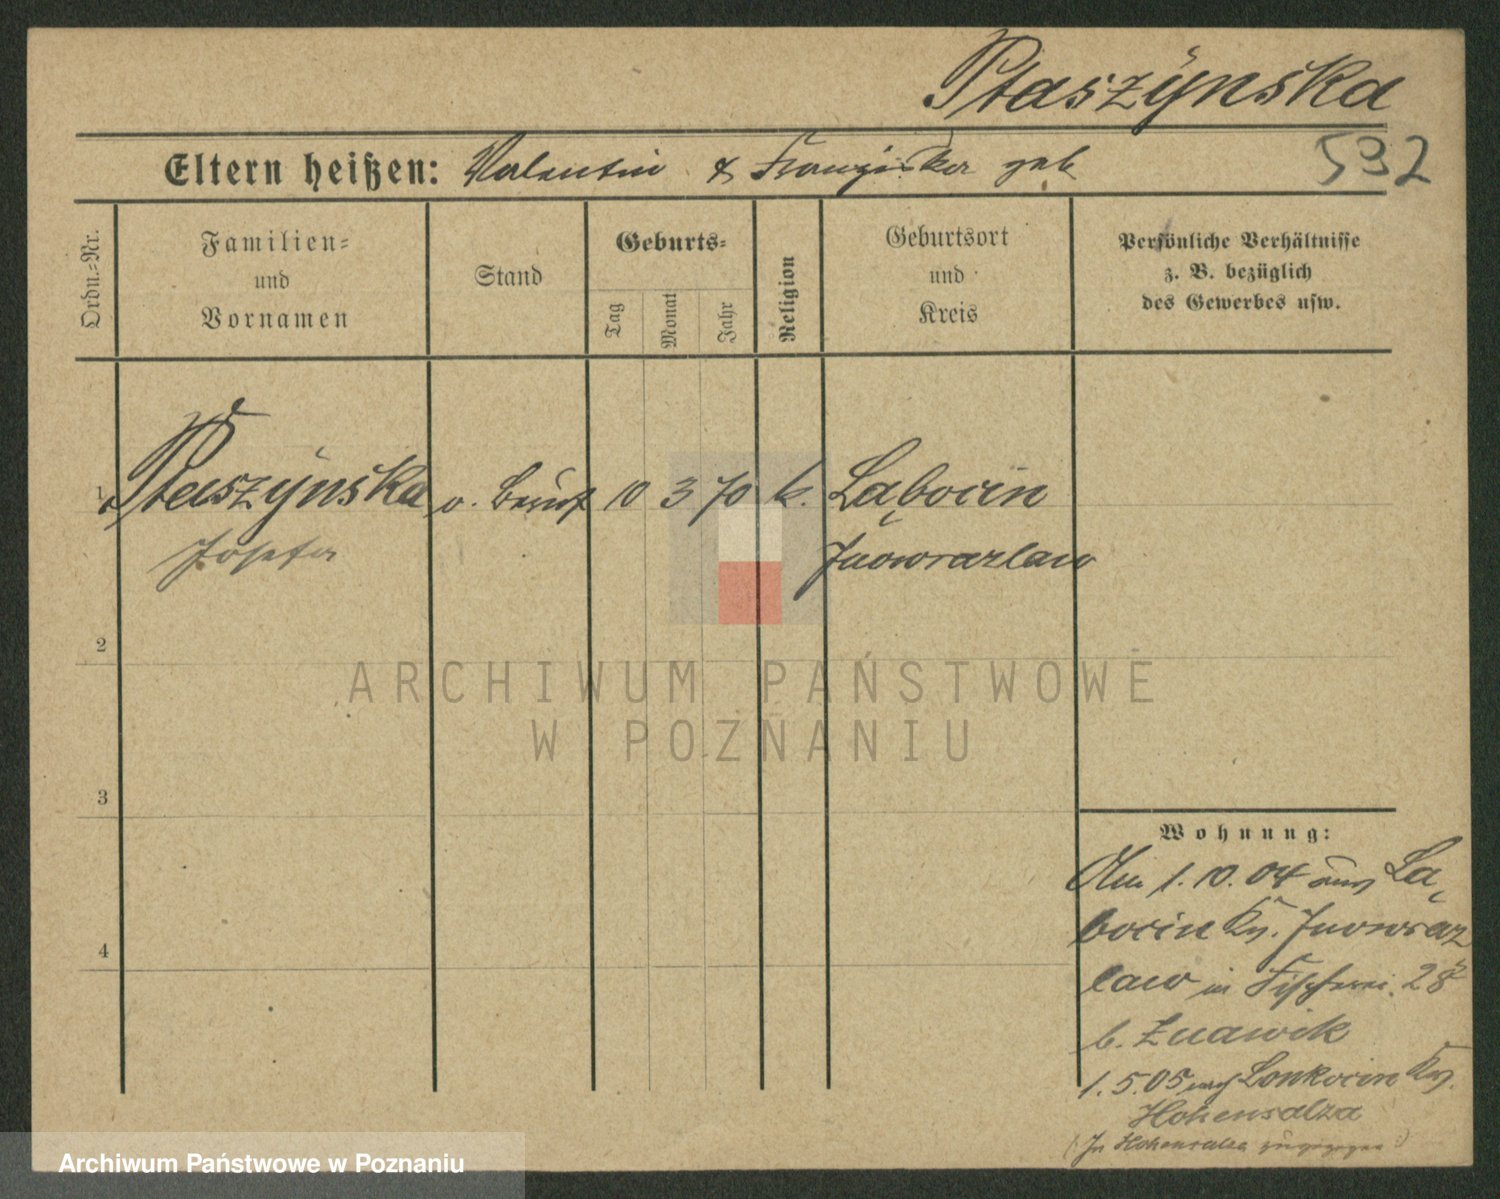 Ptaszynska
592
Eltern heißen: Valentin & Franziska geb
Ordn.=Nr.
Familien=
und
Vornamen
Stand
Geburts=
Tag
Monat
Jahr
Religion
Geburtsort
und
Kreis
Persönliche Verhältnisse
z. B. bezüglich
des Gewerbes usw.
1 Ptaszynska o. Beruf 10 3 70 k. Labocin
Josefa Inowrazlaw
2
3
4
Wohnung:
Am 1.10.04 aus La
bocin Krs. Inowraz
law in Fischerei 28
b. Znawik
1.5.05 nach Lonkocin Krs.
Hohensalza
(In Hohensalza zugezogen)
ARCHIWUM PAŃSTWOWE
W POZNANIU
Archiwum Państwowe w Poznaniu